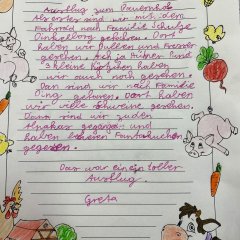 Ausflug zum Bauernhof
Als erster sind wir mit dem
Fahrrad nach Familie Schulze
Dinkelborg gefahren. Dort
haben wir Bullen und Fresser
gesehen. Ach ja Hüner und
3 kleine Kätzchen haben
wir auch noch gesehen.
Dan sind wir nach Familie
Ding gefahren dort haben
wir viele Schweine gesehen.
Dann sind wir zu den
Alpakas gegangen und
haben leckeren
gegessen.
Das war ein toller
Ausflug.
Greta